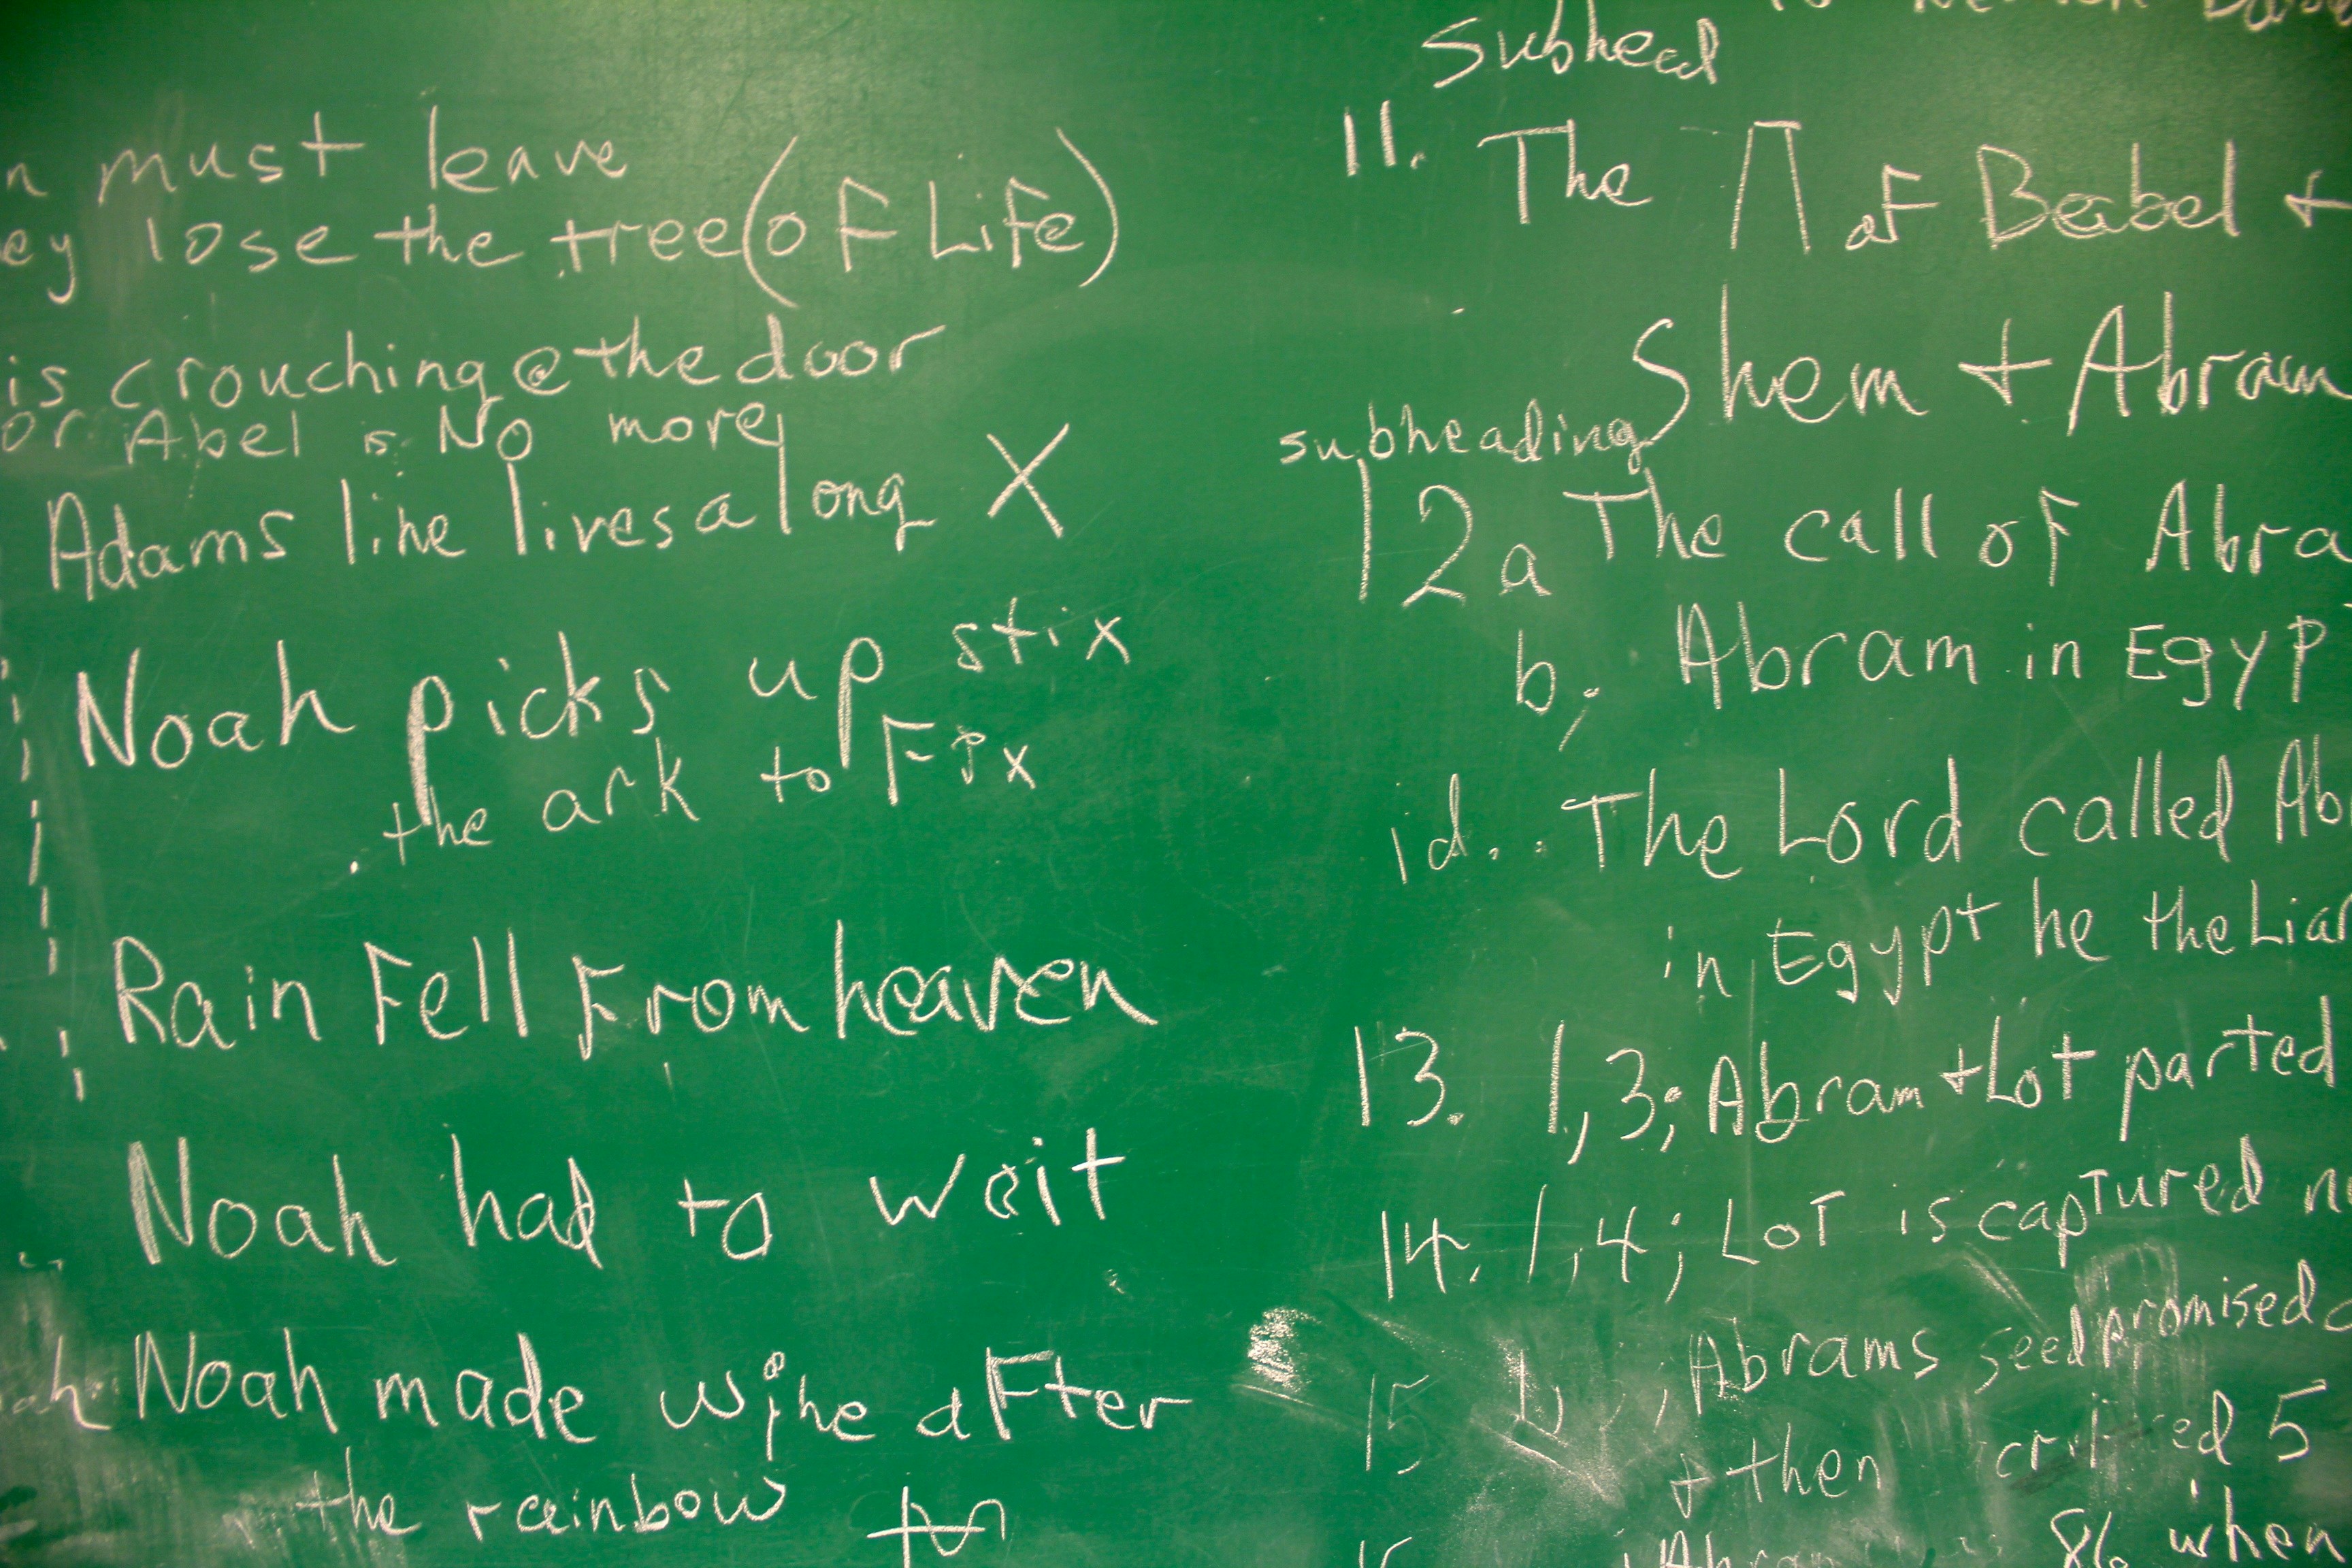 n must leave
ey lose the tree (of Life)
is crouching @ the door
or Abel is No more
Adams line lives along X
Noah picks up stix
the ark to Fix
Rain Fell From heaven
Noah had to wait
ah Noah made wine after
the rainbow
Subhead
11. The Π of Babel +
Shem + Abram
subheading
12a The call of Abra
b; Abram in Egyp
1d. . The Lord called Ab
in Egypt he the Liar
13. 1,3; Abram + Lot parted
14. 1,4; Lot is captured n
15 ; Abrams seed promised
+ then 5
Abram 86 when